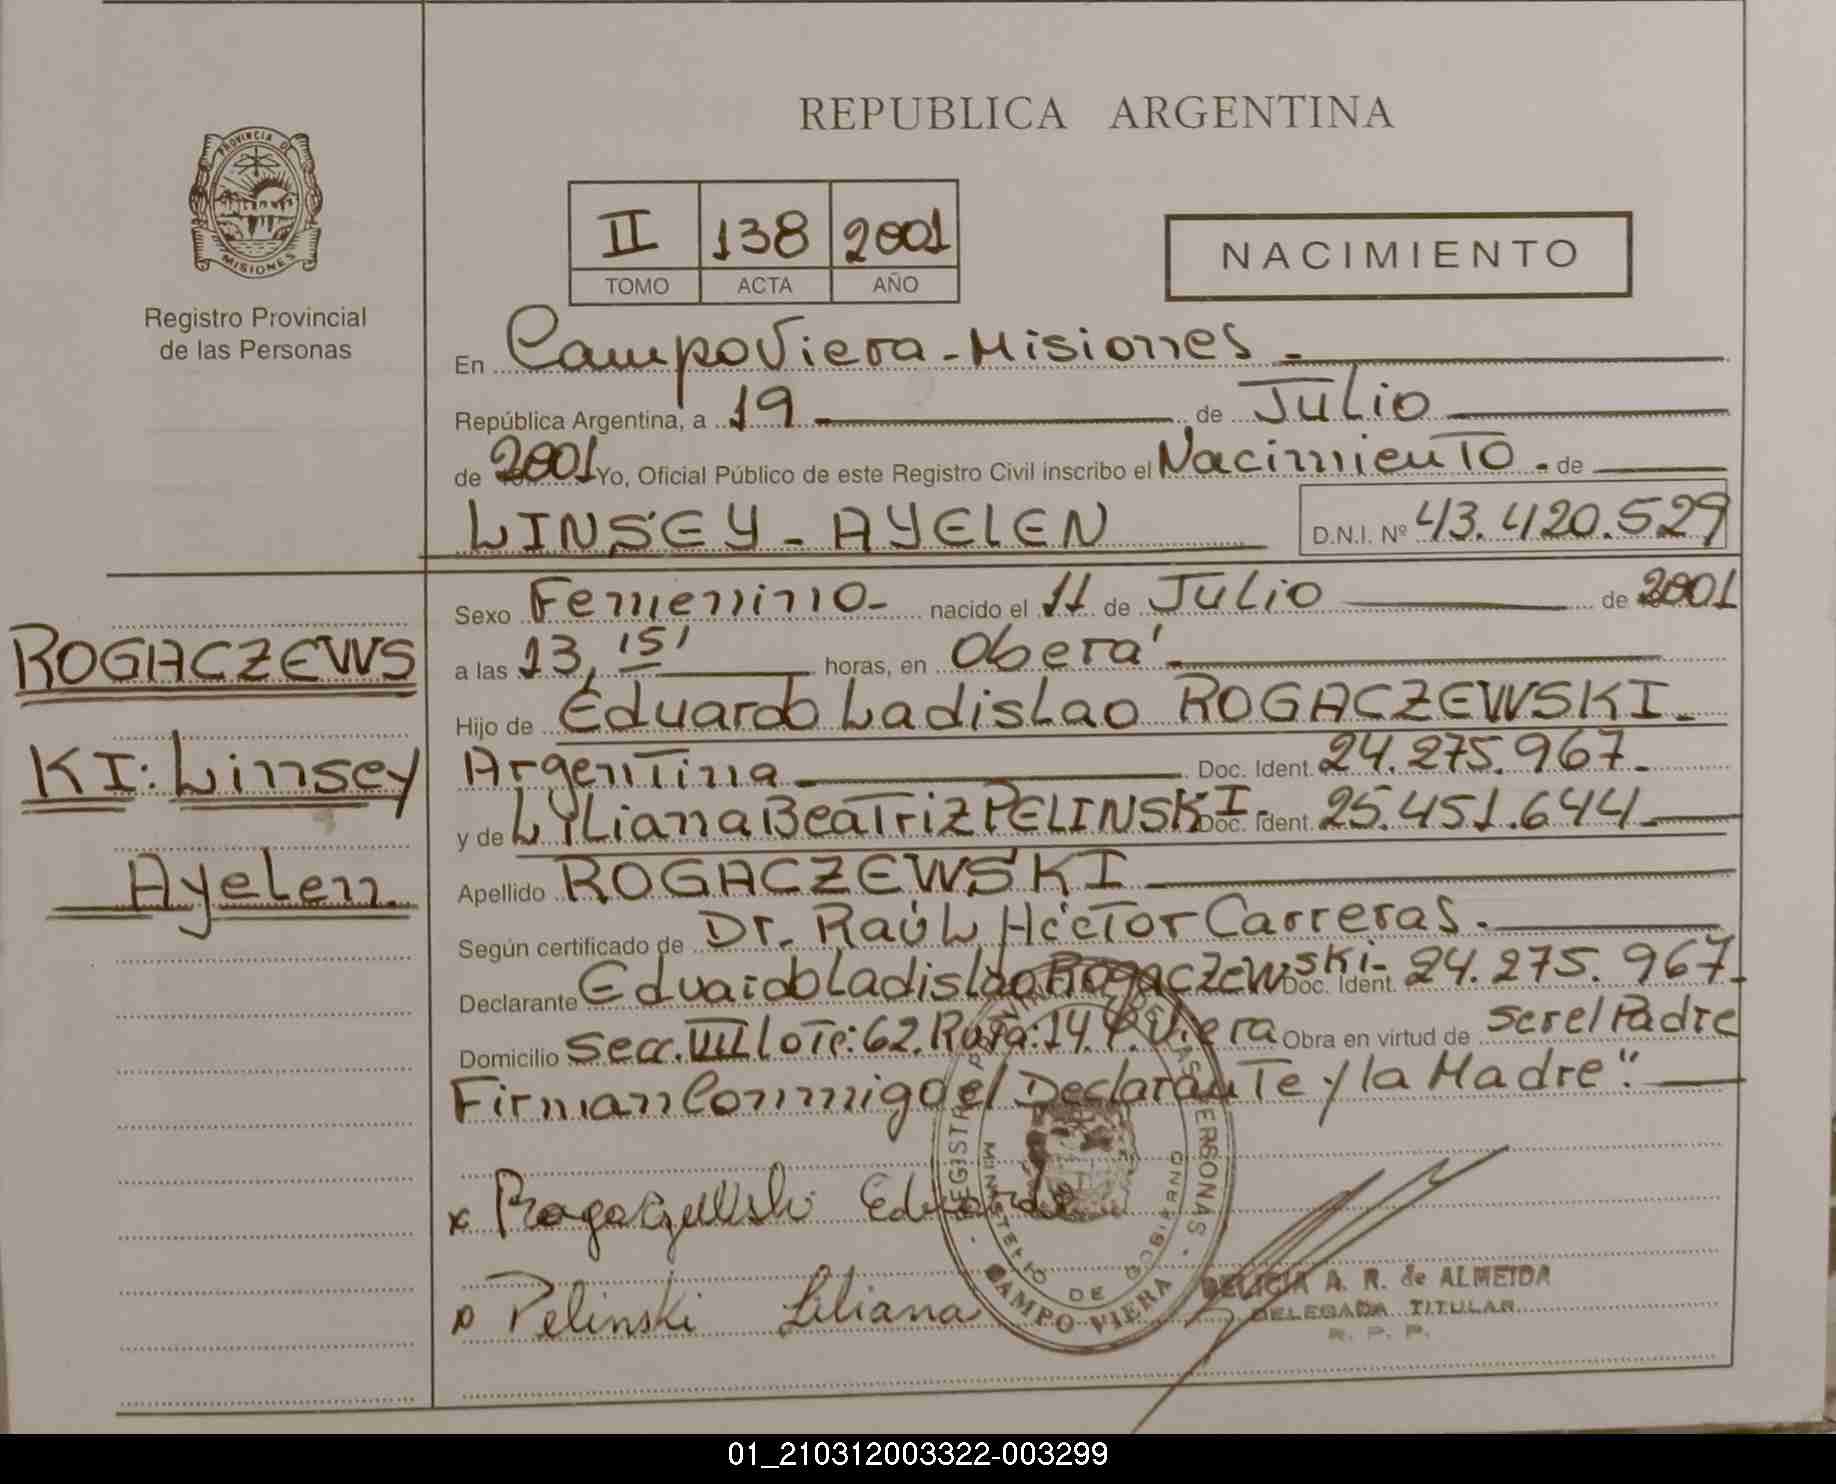 PROVINCIA DE
MISIONES
Registro Provincial
de las Personas
REPUBLICA ARGENTINA
II 138 2001
TOMO ACTA AÑO
NACIMIENTO
En Campo Viera - Misiones -
República Argentina, a 19 de Julio
de 2001 Yo, Oficial Público de este Registro Civil inscribo el Nacimiento - de
LINSEY - AYELEN D.N.I. Nº 43.420.529
ROGACZEWS
KI: Linsey
Ayelen
Sexo Femenino - nacido el 11 de Julio de 2001
a las 13, 15' horas, en Oberá
Hijo de Eduardo Ladislao ROGACZEWSKI -
Argentina Doc. Ident. 24.275.967 -
y de LyLiana Beatriz PELINSKI - Doc. Ident. 25.451.644
Apellido ROGACZEWSKI
Según certificado de Dr. Raúl Héctor Carreras.
Declarante Eduardo Ladislao Rogaczewski - Doc. Ident. 24.275.967 -
Domicilio Secc. VIII Lote: 62. Ruta: 14. Viera Obra en virtud de ser el Padre
Firman Conmigo el Declarante y la Madre".
x Rogaczewski Eduardo
Pelinski Liliana
MINISTERIO DE GOBIERNO
CAMPO VIERA
DELICIA A. R. de ALMEIDA
DELEGADA TITULAR
R. P. P.
01_210312003322-003299